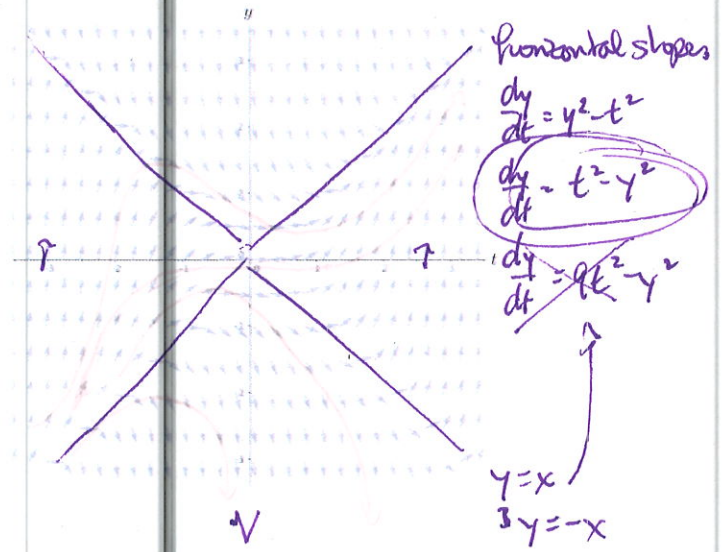 y
horizontal slopes
dy/dt = y²-t²
dy/dt = t²-y²
dy/dt = 9t²-y²
y=x
3 y=-x